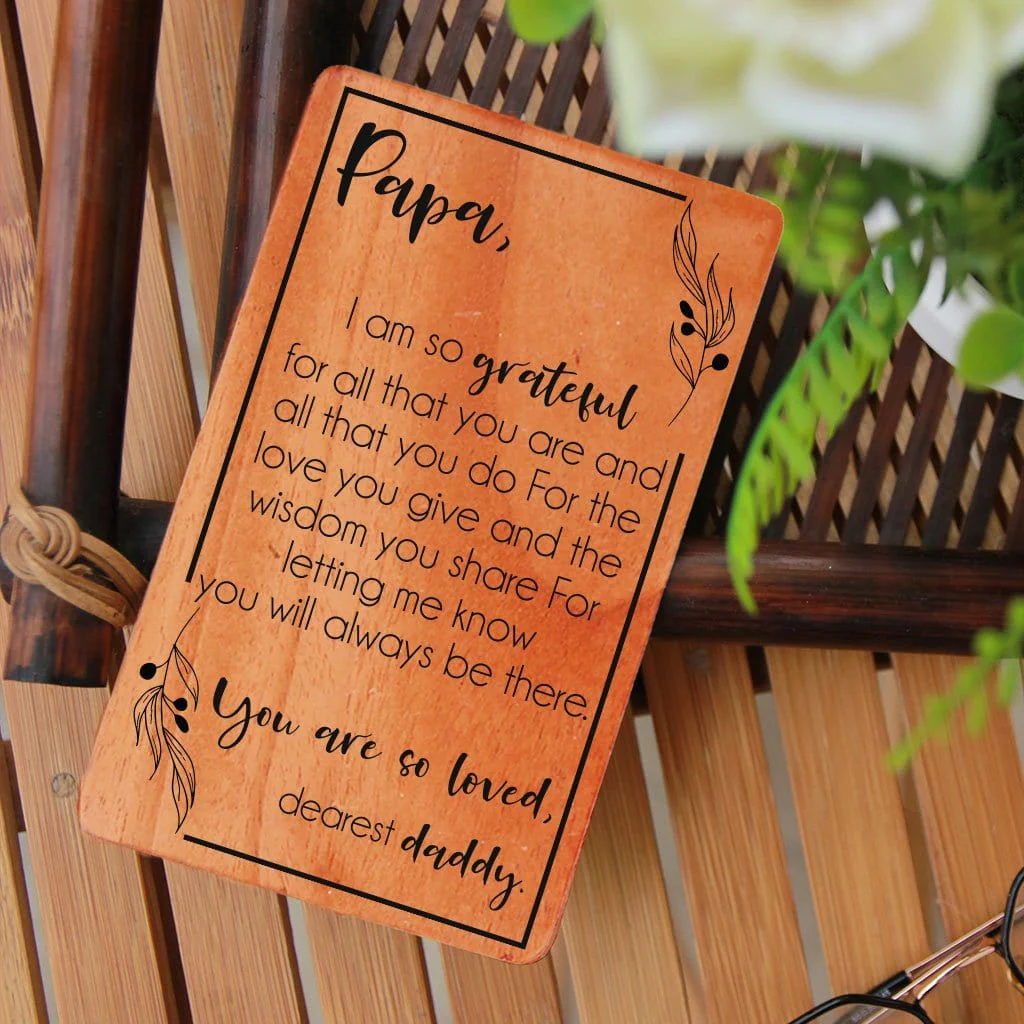 Papa,
I am so grateful
for all that you are and
all that you do For the
love you give and the
wisdom you share For
letting me know
you will always be there.
You are so loved,
dearest daddy.